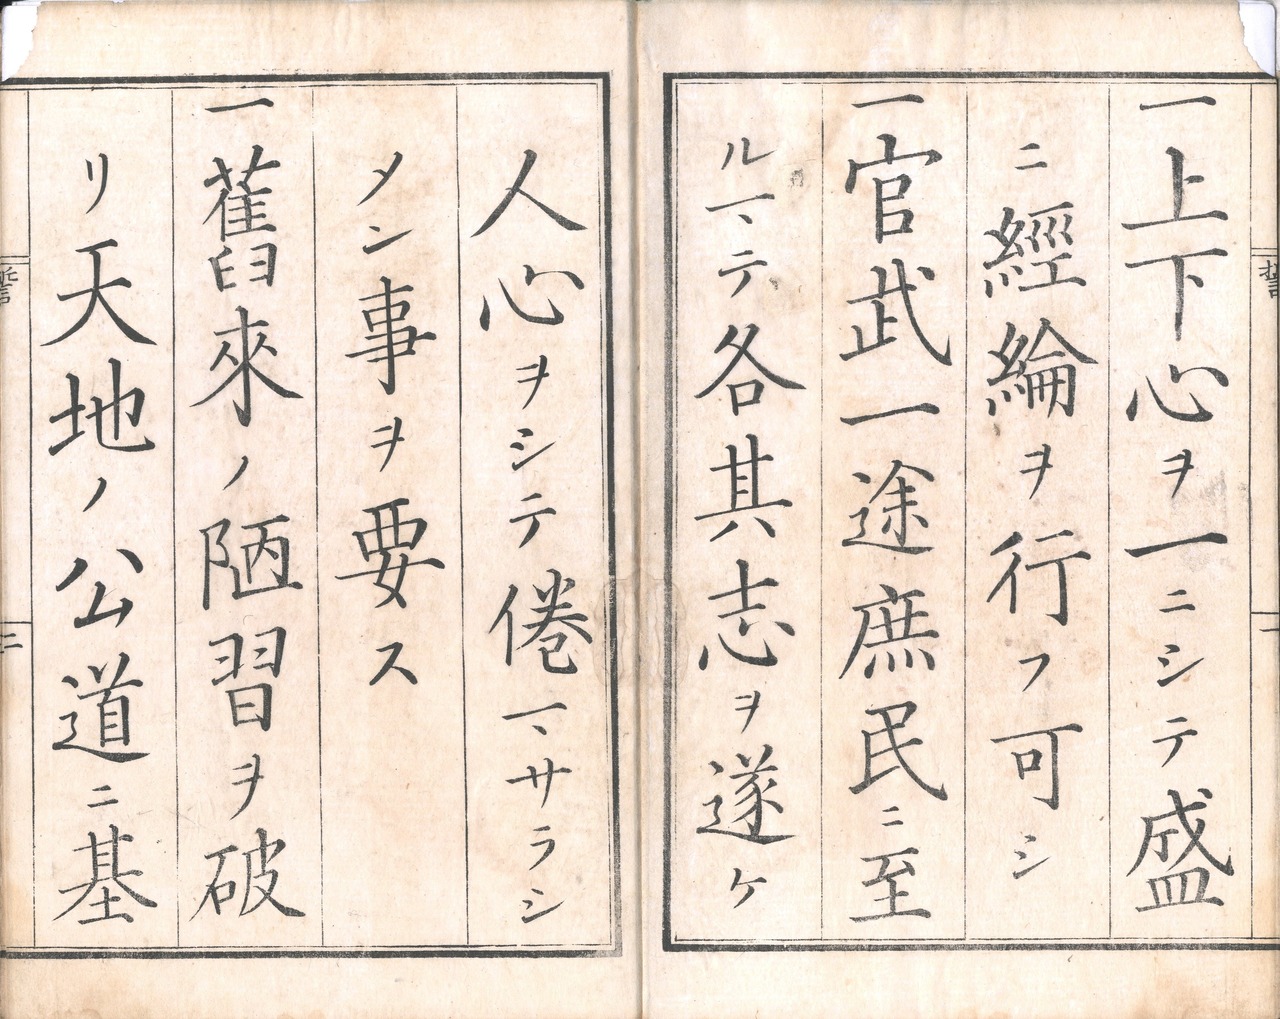 一上下心ヲ一ニシテ盛
ニ經綸ヲ行フ可シ
一官武一途庶民ニ至
ルマテ各其志ヲ遂ケ
人心ヲシテ倦マサラシ
メン事ヲ要ス
一舊來ノ陋習ヲ破
リ天地ノ公道ニ基